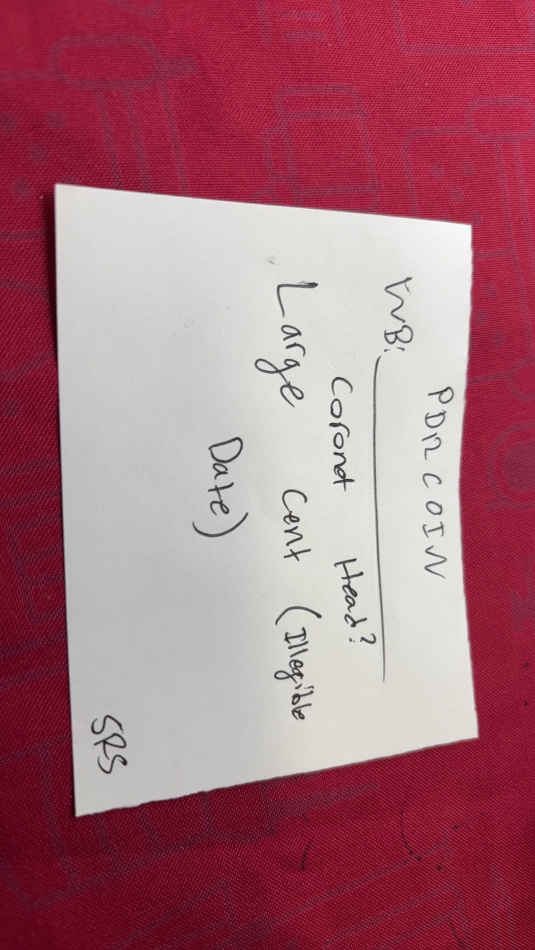 PDR COIN
WB:
Coronet Head?
Large Cent (Illegible
Date)
SRS